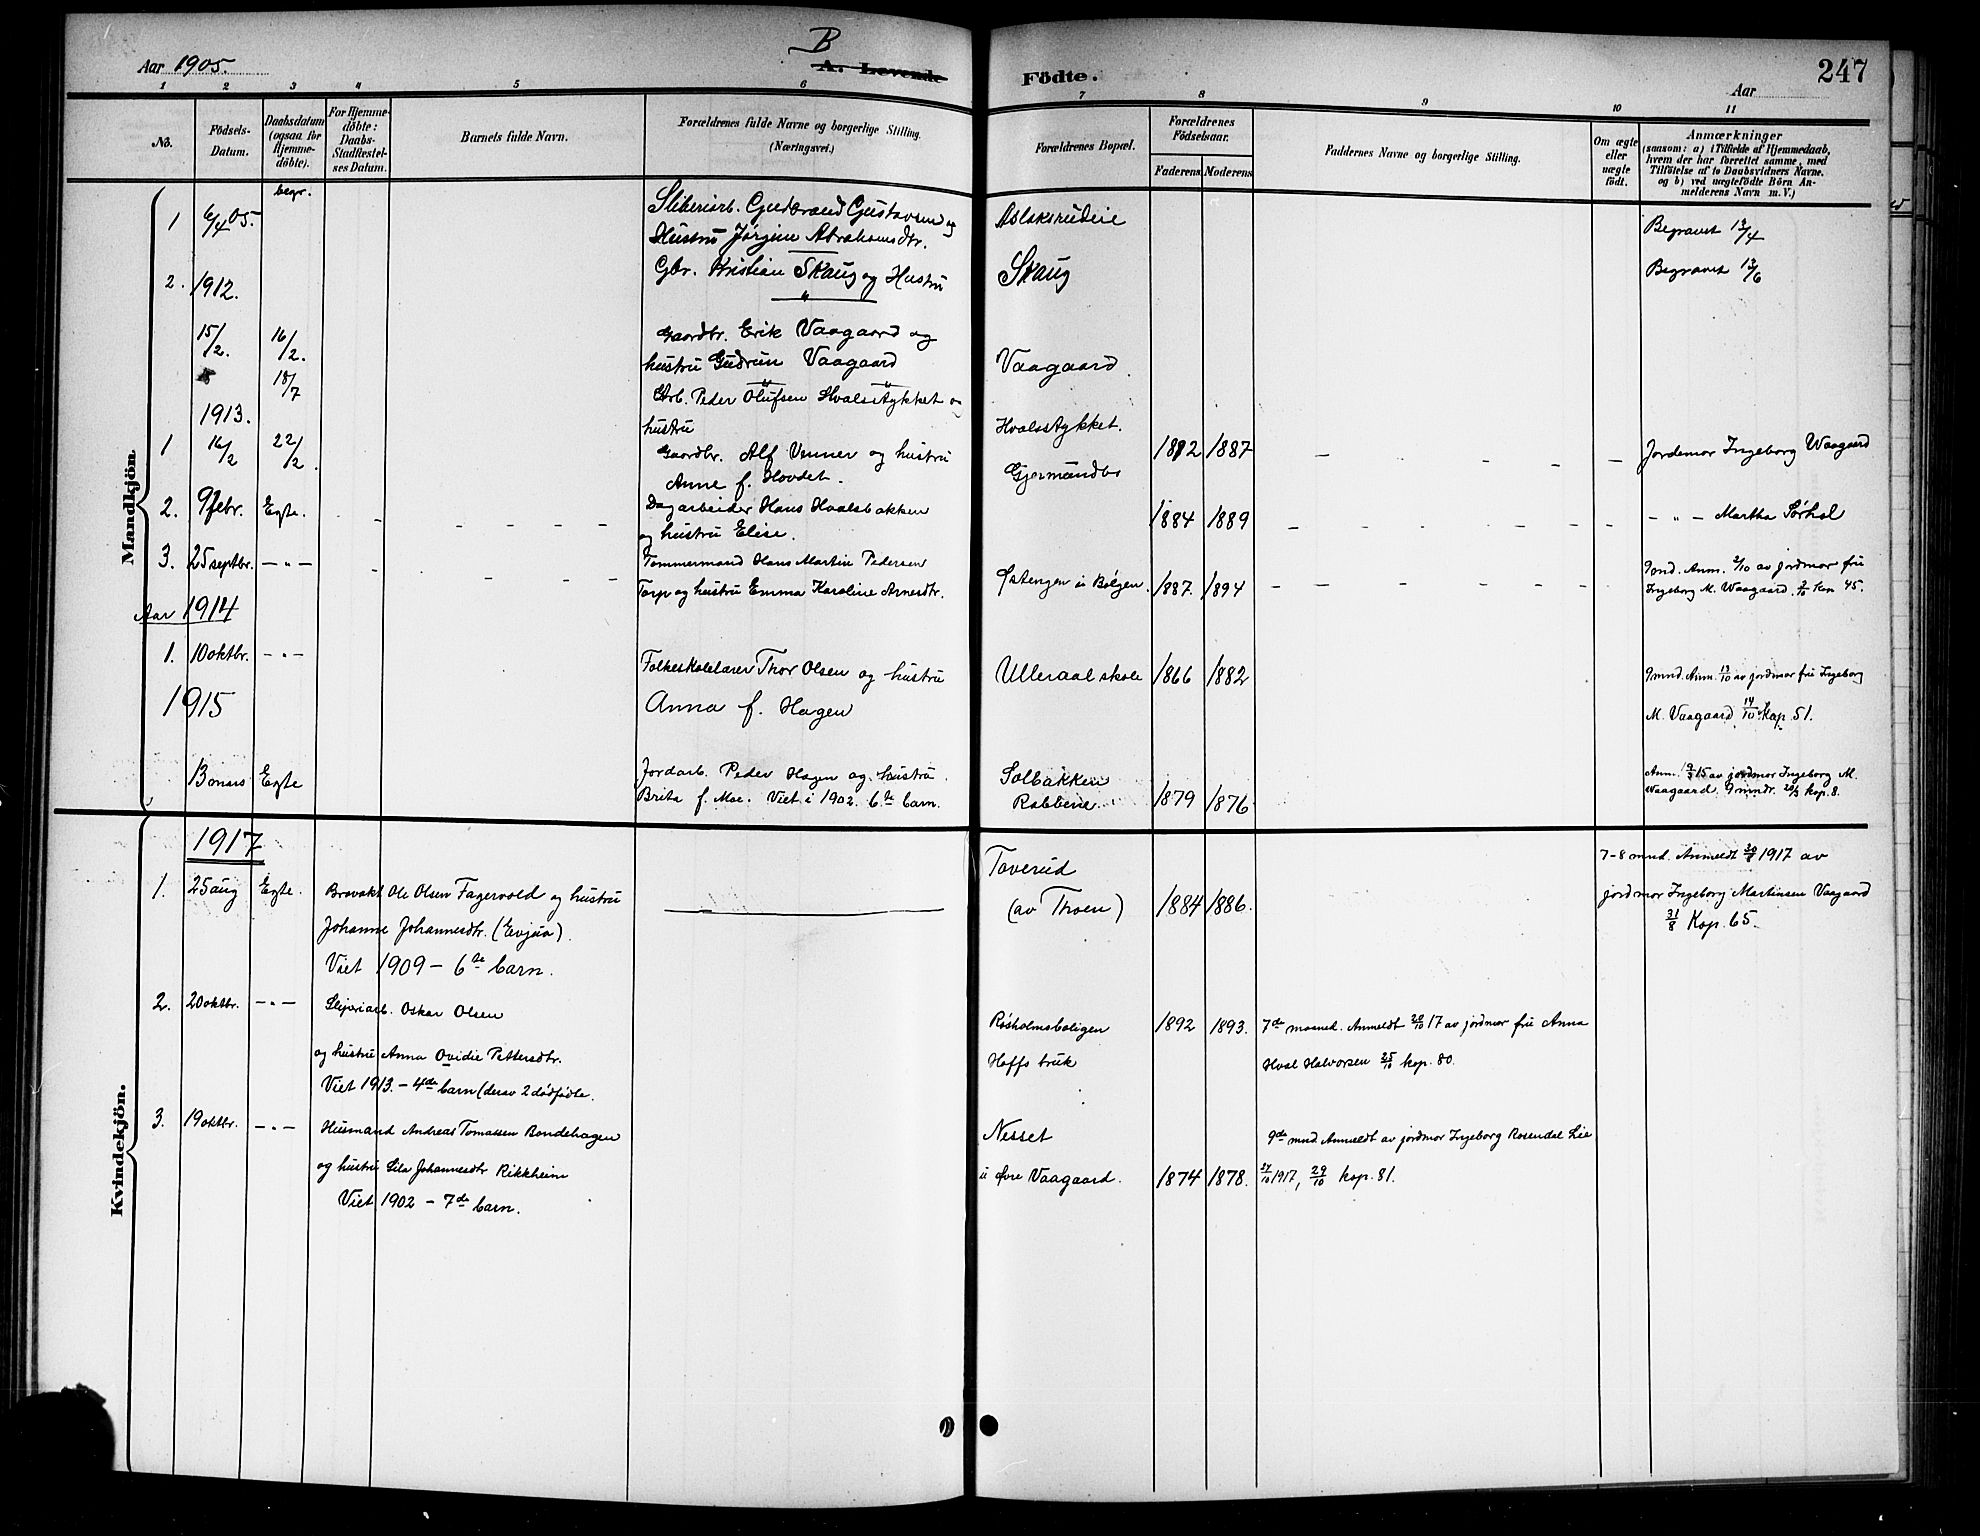 B
Aar 1905.
A. Levende Födte.
Aar
247
1 2 3 4 5 6 7 8 9 10 11
No.
Födsels-Datum.
Daabsdatum (ogsaa for Hjemme-döbte).
For Hjemme-döbte: Daabs-Stadfæstel-ses Datum.
Barnets fulde Navn.
Forældrenes fulde Navne og borgerlige Stilling. (Næringsvei.)
Forældrenes Bopæl.
Forældrenes Födselsaar.
Faderens Moderens
Faddernes Navne og borgerlige Stilling.
Om ægte eller uægte födt.
Anmærkninger
(saasom: a) i Tilfælde af Hjemmedaab,
hvem der har forrettet samme, med
Tilföielse af to Daabsvidners Navne,
og b) ved uægtefödte Börn An-
melderens Navn m. V.)
Mandkjön.
begr.
1 6/4 05. Sliberiarb. Gudbrand Gustavsen og Aslaksrudeie Begravet 13/4
Hustru Jørgine Abrahamsdtr.
2. Gbr. Kristian Skaug og Hustru Skaug Begravet 13/6
1912.
15/2. 16/2. Gaardbr. Erik Vaagaard og
hustru Gudrun Vaagaard Vaagaard
18/7 Arb. Peder Olufsen Hvalsstykket og
1913. hustru Hvalsstykket.
1 16/2 22/2. Gaardbr. Alf Venner og hustru 1887 Jordemor Ingeborg Waagaard
Anne f. Hovdet. Gjermundbo
2. 9 febr. Egte. Dagarbeider Hans Hvalsbakken 1884 1889 – „ – Martha Sørhol
og hustru Elise.
3. 25 septbr. – „ – Tømmermand Hans Martin Pedersen 9 md. Anm. 2/10 av jordmor fru
Torp og hustru Emma Karoline Arnesdtr. Østengen u Bølgen. 1887. 1894 Ingeborg M. Waagaard. Kap 45.
Aar 1914
1. 10 oktbr. – „ – Folkeskolelærer Thor Olsen og hustru Ulleraal skole 1866 1882 9 mnd. Anm. 13/10 av jordmor fru Ingeborg
1915 Anna f. Hagen M. Vaagaard, 14/10 Kap. 51.
13 mars Egte Jordarb. Peder Hagen og hustru Solbakken Anm. 15 av jordmor Ingeborg M.
Brita f. Moe. Viet i 1902. 6te barn. Rabbene 1879 1876 Waagaard. 9 mndr. kop. 8.
Kvindekjön.
1917 Toverud 7-8 mnd. Anmeldt 30/8 1917 av
1. 25 aug Egte. Brovakt Ole Olsen Fagervold og hustru (av Thoen) 1884 1886. jordmor Ingeborg Martinsen Vaagaard
Johanne Johannesdtr. (Evjua). 31/8 Kop. 65.
Viet 1909 – 6te barn.
2. 20 oktbr. – „ – Sliperiarb. Oskar Olsen Røsholmsboligen 1892 1893. 7de maaned. Anmeldt 17 av jordmor fru Anna
og hustru Anna Ovidie Pettersdtr. Hoffs bruk Hval Halvorsen 25/10 kop. 80.
Viet 1913. – 4de barn (derav 2 dødfødte.
3. 19 oktbr. – „ – Husmand Andreas Tomassen Bondehagen Nesset 9de mnd Anmeldt av jordmor Ingeborg Rosendal Lie
og hustru Sila Johannesdtr Rikkheim u Øvre Vaagaard. 1874 1878. 27/10 1917, 29/10 kop. 81.
Viet 1902 – 7de barn.